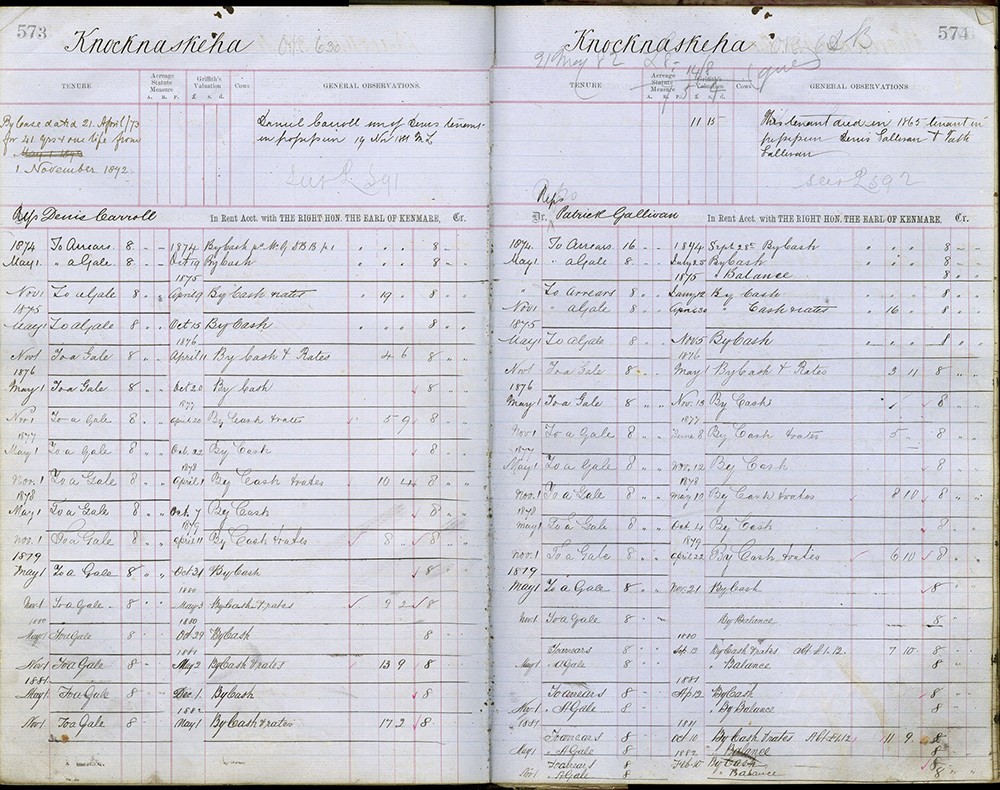 573
Knocknaskeha
TENURE
Acreage Statute Measure
A. R. P.
Griffith's Valuation
£ s. d.
Cows
GENERAL OBSERVATIONS.
By lease dated 21 April /73
for 41 yrs & one life from
May 1 1873
1. November 1872.
Daniel Carroll son of Denis tenant
in possession 19 Nov 1881 M L
Reps Denis Carroll
In Rent Acct. with THE RIGHT HON. THE EARL OF KENMARE, Cr.
1874 To Arrears 8 - - 1874 By Cash 8 - -
May 1 " a Gale 8 . . Oct 19 By Cash . . . 8 . .
1875
Nov 1 To a Gale 8 . . April 9 By Cash & rates . 19 . 8 . .
1875
May 1 To a Gale 8 . . Oct 15 By Cash . . . 8 . .
1876
Nov 1 To a Gale 8 " " April 11 By Cash & Rates 4 6 8 " "
1876
May 1 To a Gale 8 " " Oct 20 By Cash 8 " "
1877
Nov 1 To a Gale 8 " " April 20 By Cash & rates 5 9 8 " "
1877
May 1 To a Gale 8 " " Oct. 22 By Cash 8 " "
1878
Nov. 1 To a Gale 8 " " April 1 By Cash & rates 10 4 8 " "
1878
May 1 To a Gale 8 " " Oct. 7 By Cash 8 " "
1879
Nov. 1 To a Gale 8 " " April 11 By Cash & rates 8 " 8 " "
1879
May 1 To a Gale 8 " " Oct 21 By Cash 8
1880
Nov. 1 To a Gale 8 " " May 3 By Cash & rates 9 2 8
1880 1880
May 1 To a Gale 8 " " Oct 29 By Cash 8
1881
Nov 1 To a Gale 8 " " May 2 By Cash & rates 13 9 8
1881
May 1 To a Gale 8 " " Dec 1 By Cash 8
1882
Nov 1 To a Gale 8 " " May 1 By Cash & rates 17 2 8
574
Knocknaskeha
21 May 82
TENURE
Acreage Statute Measure
A. R. P.
Griffith's Valuation
£ s. d.
Cows
GENERAL OBSERVATIONS.
11 15
This tenant died in 1865 tenant in
possession Denis Gallivan & Patk
Gallivan
Reps
Dr. Patrick Gallivan
In Rent Acct. with THE RIGHT HON. THE EARL OF KENMARE, Cr.
1874 To Arrears 16 - - 1874 Sept 28th By Cash . . . 8 - -
May 1 " a Gale 8 . . July 25 By Cash . . . 8 . .
1875 " Balance 8 . .
" To Arrears 8 . . Jany 12 By Cash . . . 8 . .
Nov 1 " a Gale 8 . . April 30 " Cash & rates . 16 . 8 . .
1875
May 1 To a Gale 8 . . Nov 5 By Cash . . . 8 . .
1876
Nov 1 To a Gale 8 " " May 1 By Cash & Rates 2 11 8 " "
1876
May 1 To a Gale 8 " " Nov. 13 By Cash 8 " "
1877
Nov 1 To a Gale 8 " " June 8 By Cash & rates 5 - 8
1877
May 1 To a Gale 8 " " Nov. 12 By Cash 8 " "
1878
Nov. 1 To a Gale 8 " " May 10 By Cash & rates 8 10 8 " "
1878
May 1 To a Gale 8 " " Oct. 4 By Cash 8 " "
1879
Nov. 1 To a Gale 8 " " April 22 By Cash & rates 6 10 8 " "
1879
May 1 To a Gale 8 " " Nov. 21 By Cash 8
Nov. 1 To a Gale 8 " " By Balance 8
1880
To arrears 8 Sep 13 By Cash & rates 7 10 8
May 1 " A Gale 8 " Balance 8
1881
To arrears 8 Ap 12 By Cash 8
Nov 1 " A Gale 8 " By Balance 8
1881 1881
To arrears 8 Oct 10 By Cash & rates 11 9 8
May 1 " A Gale 8 1882 " Balance 8
To arrears 8 Feb 10 By Cash 8
Nov 1 " A Gale 8 " Balance 8